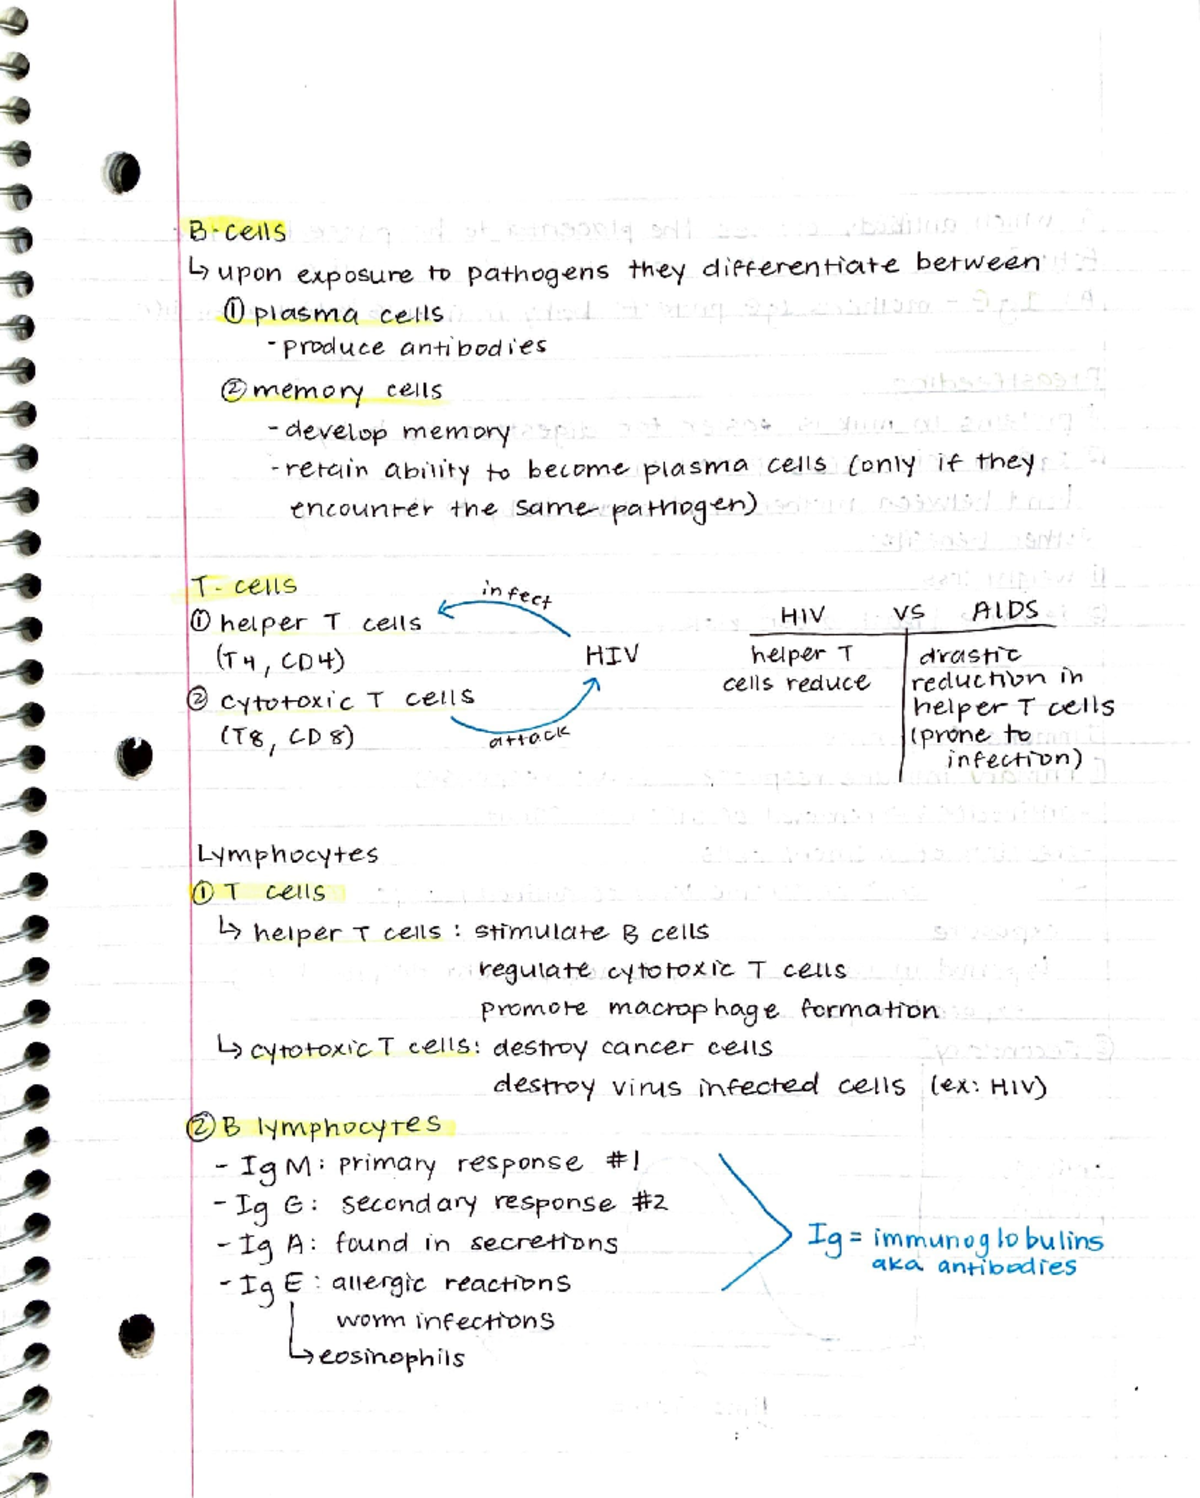 B-cells
↳ upon exposure to pathogens they differentiate between
① plasma cells
- produce antibodies
② memory cells
- develop memory
- retain ability to become plasma cells (only if they
encounter the same pathogen)
T-cells
① helper T cells
(T4, CD4)
② cytotoxic T cells
(T8, CD8)
infect
HIV
attack
HIV vs AIDS
helper T
cells reduce
drastic
reduction in
helper T cells
(prone to
infection)
Lymphocytes
① T cells
↳ helper T cells: stimulate B cells
regulate cytotoxic T cells
promote macrophage formation
↳ cytotoxic T cells: destroy cancer cells
destroy virus infected cells (ex: HIV)
② B lymphocytes
- Ig M: primary response #1
- Ig G: secondary response #2
- Ig A: found in secretions
- Ig E: allergic reactions
worm infections
↳ eosinophils
Ig = immunoglobulins
aka antibodies